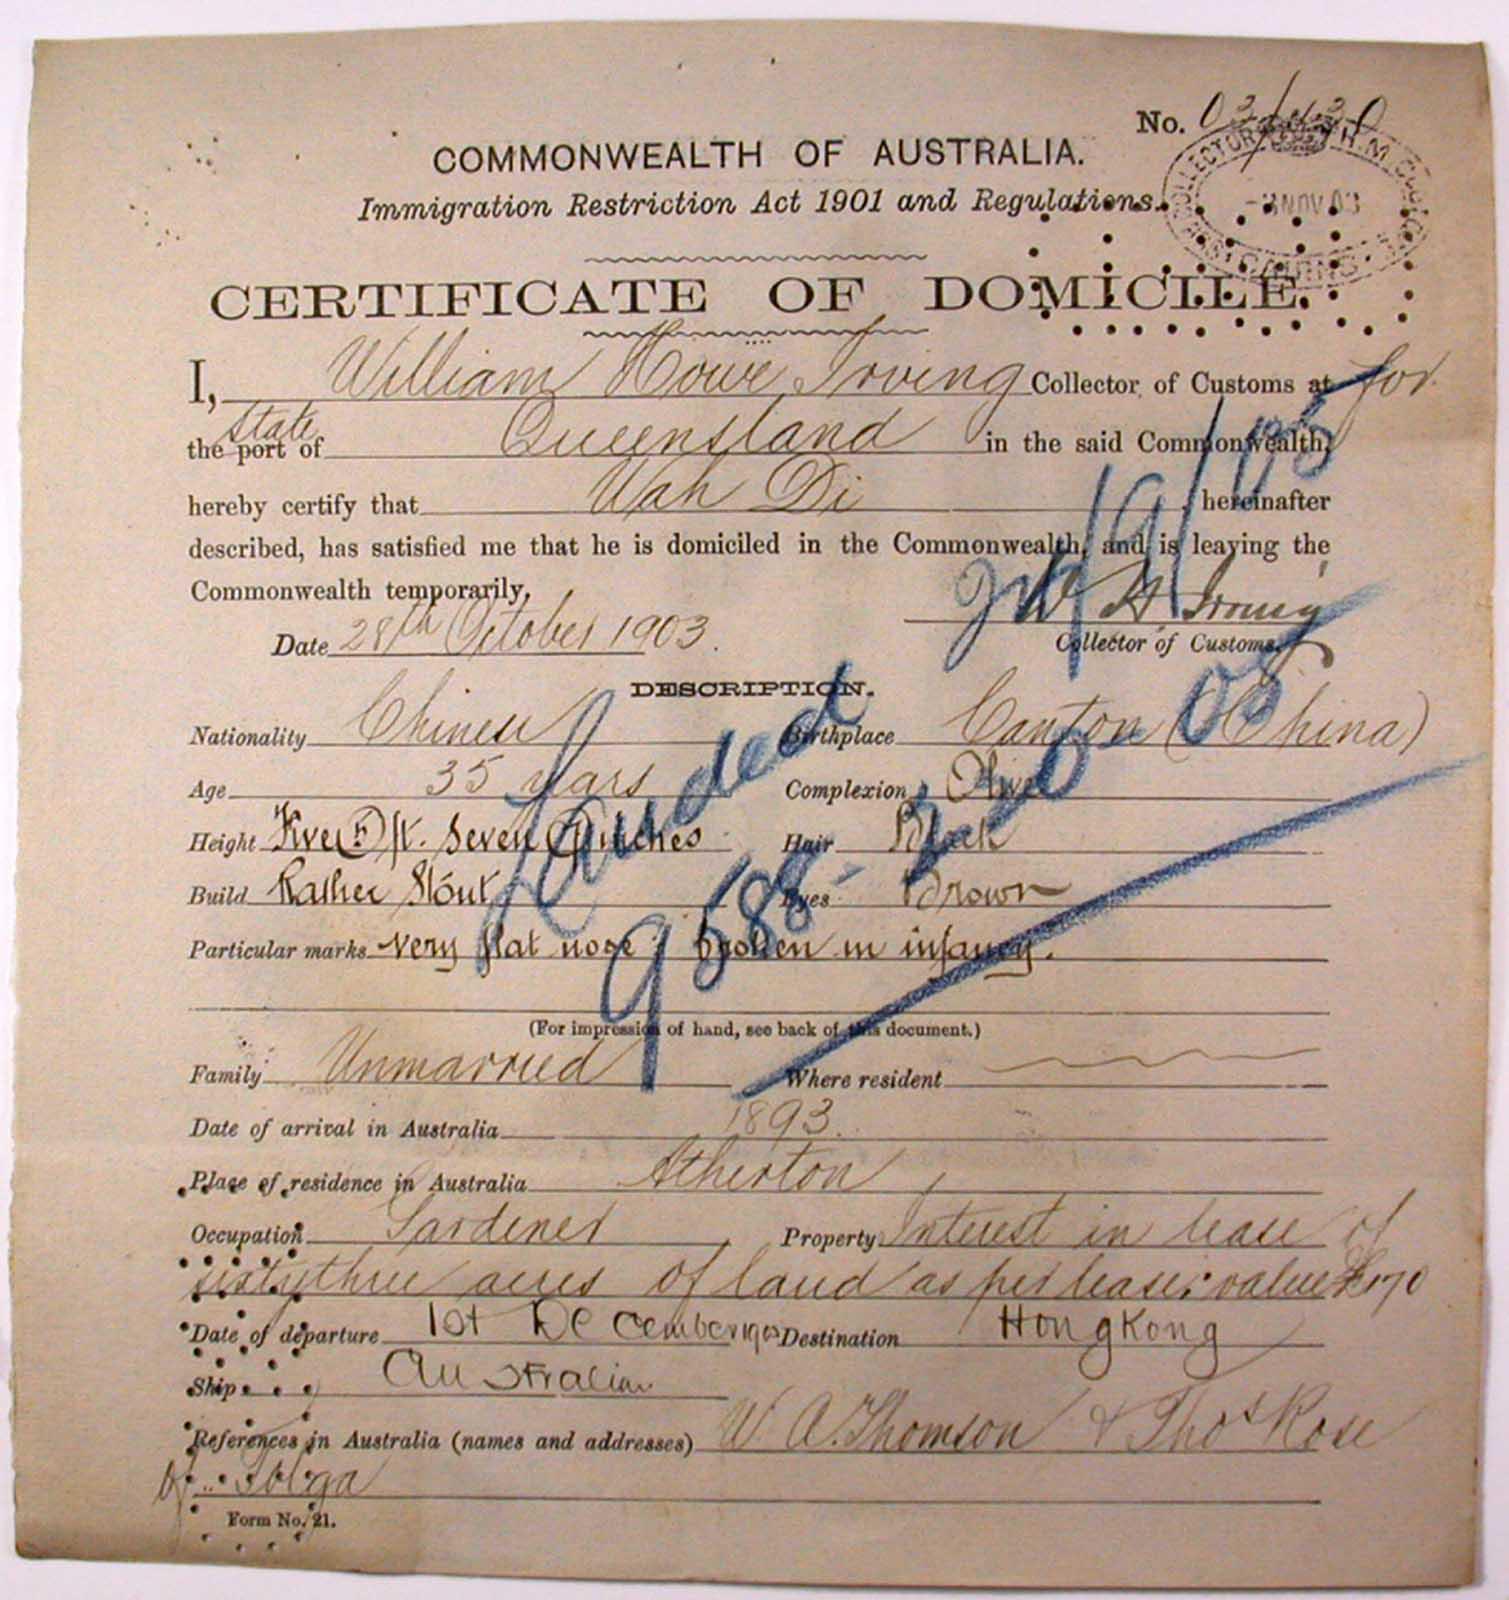 No. 03/1430
COMMONWEALTH OF AUSTRALIA.
Immigration Restriction Act 1901 and Regulations.
COLLECTOR H.M. CUSTOMS CAIRNS
NOV 03
CERTIFICATE OF DOMICILE.
I, William Howe Irving Collector of Customs at for
the port of State Queensland in the said Commonwealth,
hereby certify that Wah Di hereinafter
described, has satisfied me that he is domiciled in the Commonwealth, and is leaving the
Commonwealth temporarily.
W H Irving
Date 28th October 1903.
Collector of Customs.
DESCRIPTION.
Nationality Chinese Birthplace Canton (China)
Age 35 years Complexion Olive
Height Five (5) ft. Seven (7) inches Hair Black
Build Rather Stout Eyes Brown
Particular marks very flat nose; broken in infancy.
Landed
(For impression of hand, see back of this document.)
Family Unmarried Where resident
Date of arrival in Australia 1893.
Place of residence in Australia Atherton
Occupation Gardener Property Interest in lease of
sixty three acres of land as per lease; value £170
Date of departure 1st December 1903 Destination Hong Kong
Ship Australian
References in Australia (names and addresses) W. A. Thomson & Thos Rose
of Tolga
Form No. 21.